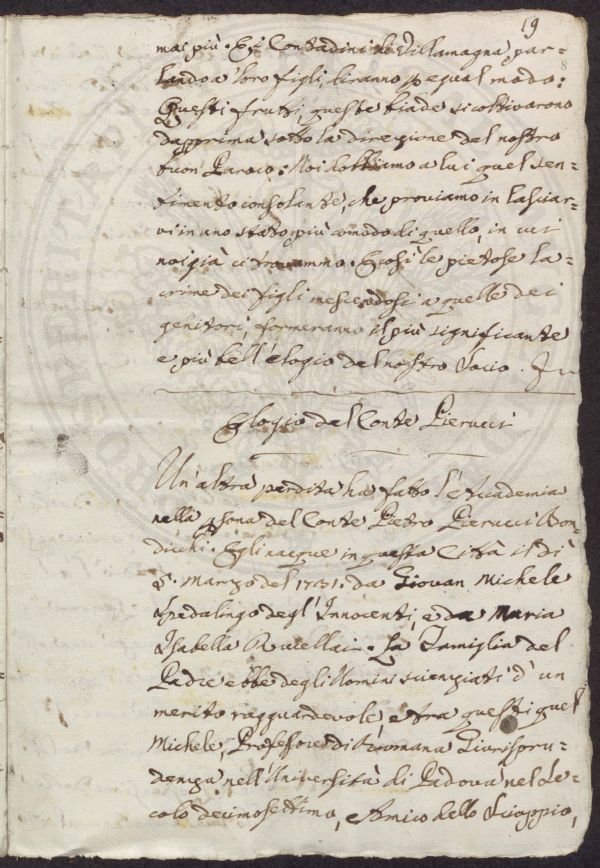 19
8
mai più. E i Contadini di Villamagna par=
lando a' loro figli, diranno p egual modo:
Questi frutti, queste biade si coltivarono
dapprima sotto la direzione del nostro
buon Paroco. Noi dobbiamo a lui quel sen=
timento consolante, che proviamo in lasciar=
vi in uno stato più comodo di quello, in cui
noi già ci trovammo. E così le pietose la=
crime dei figli mescendosi a quelle dei
genitori, formeranno il più significante
e più bell'elogio del nostro Socio.
Elogio del Conte Pierucci
Un'altra perdita ha fatto l'Accademia
nella psona del Conte Pietro Pierucci Bon=
dicchi. Egli nacque in questa Città il dì
5. Marzo del 1731. da Giovan Michele
Spedalingo degl'Innocenti, e da Maria
Isabella Rucellai. La Famiglia del
Padre ebbe degli Uomini scienziati d'un
merito ragguardevole, e tra questi quel
Michele, Professore di Romana Giurispru=
denza nell'Università di Padova nel Se=
colo decimosettimo, e Amico dello Scioppio,